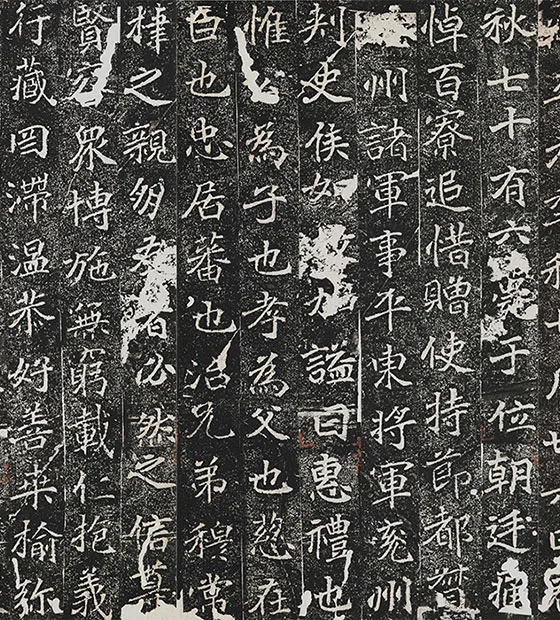 秋七十有六薨于位朝廷痛
悼百寮追惜贈使持節都督
州諸軍事平東將軍兗州
刾史侯如故加謚曰惠禮也
惟公為子也孝為父也慈在
臣也忠居蕃也治兄弟穆常
棣之親朋友著必然之信尊
賢容衆博施無窮載仁抱義
行藏罔滯溫恭好善桒榆弥